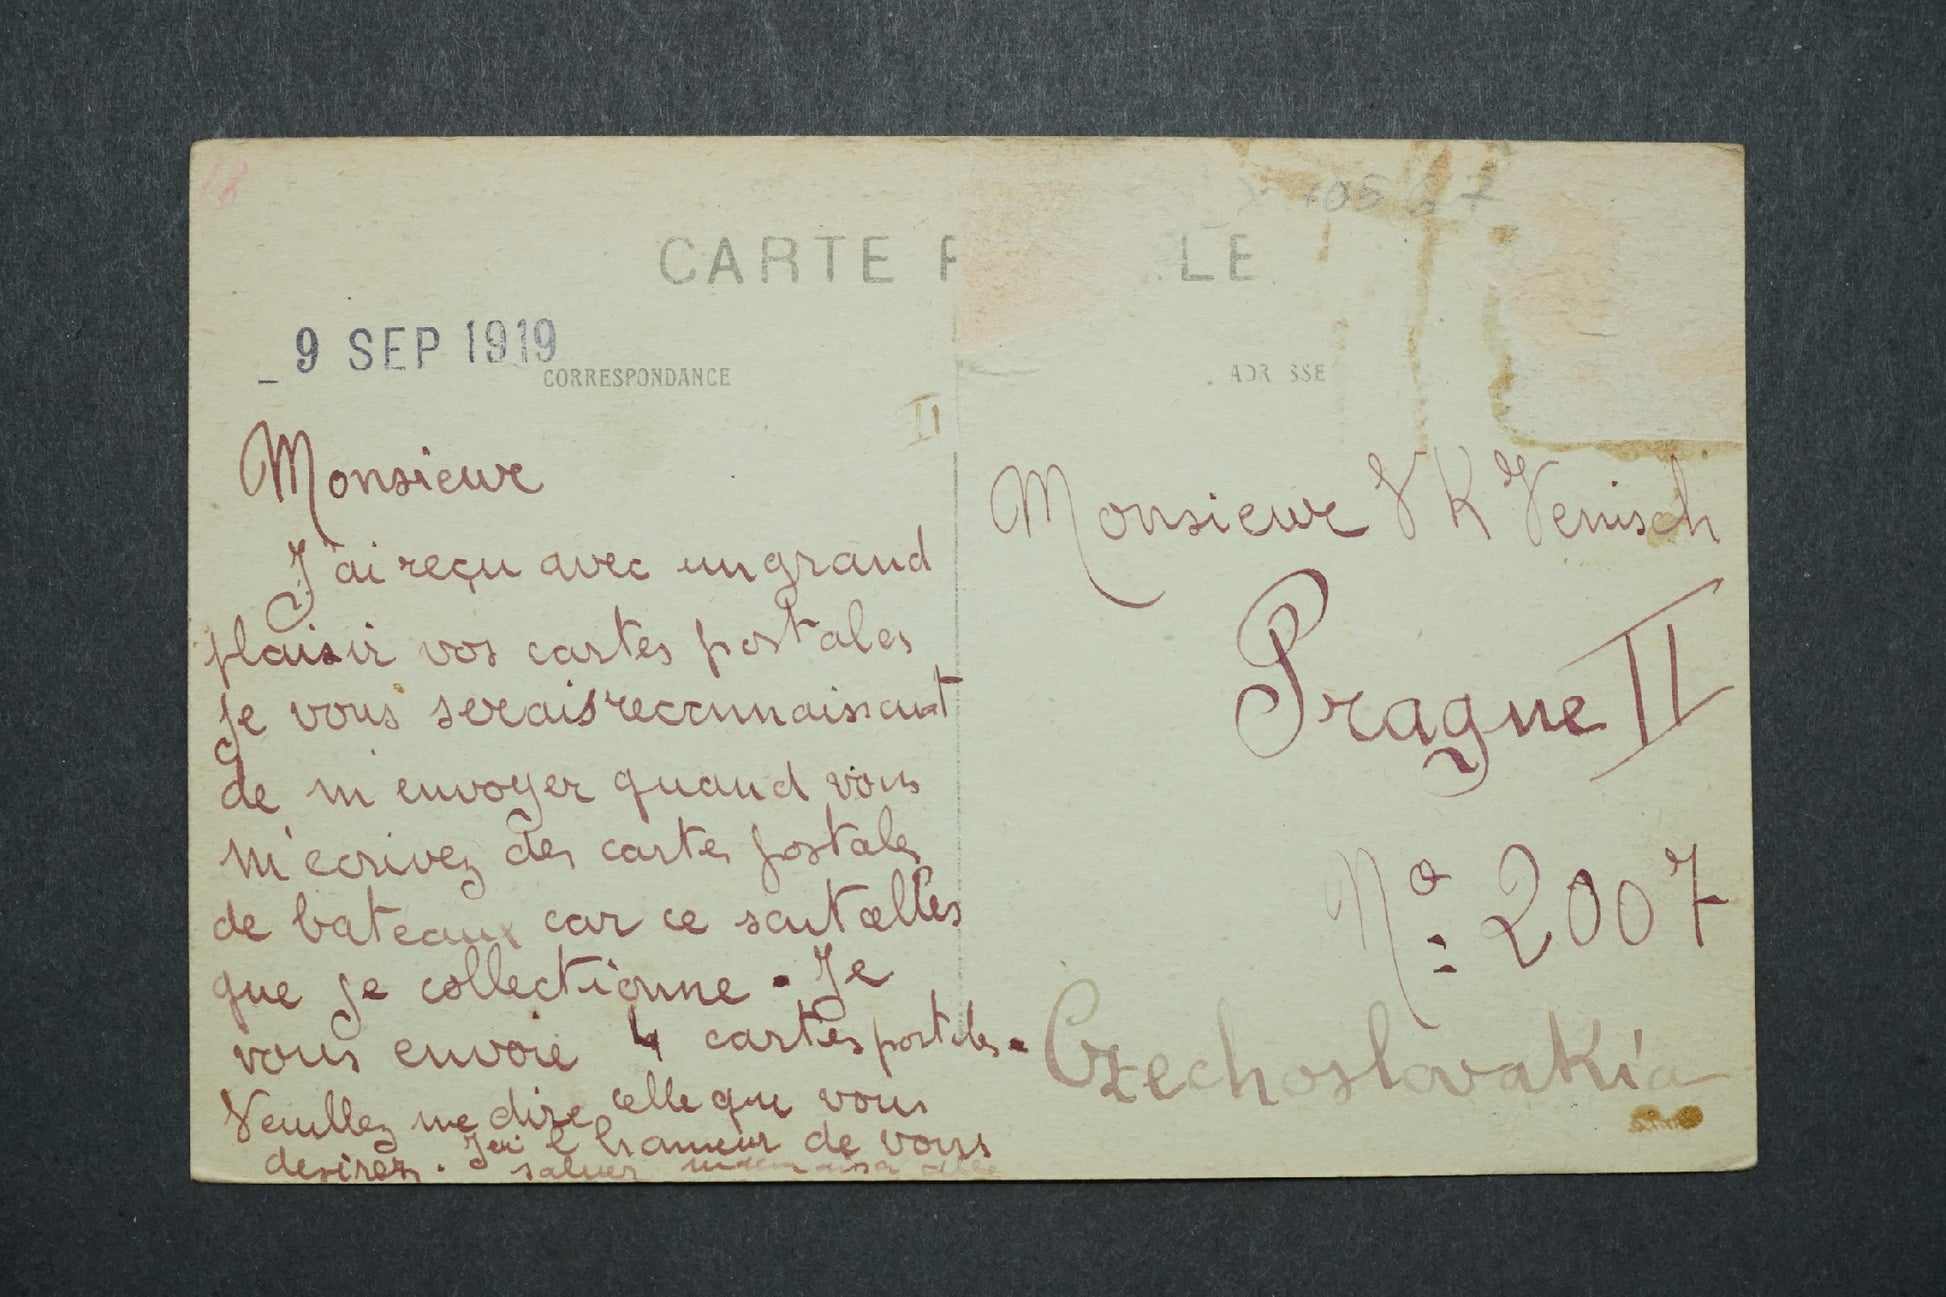 CARTE P LE
9 SEP 1919
CORRESPONDANCE
II
Monsieur
J'ai reçu avec un grand
plaisir vos cartes postales
je vous serais reconnaissant
de m'envoyer quand vous
m'ecrivez des cartes postales
de bateaux car ce sont celles
que je collectionne. Je
vous envoie 4 cartes postales.
Veuillez me dire celle que vous
desirez. J'ai l'honneur de vous
saluer
ADR SSE
Monsieur V K Venisch
Prague II
No: 2007
Czechoslovakia